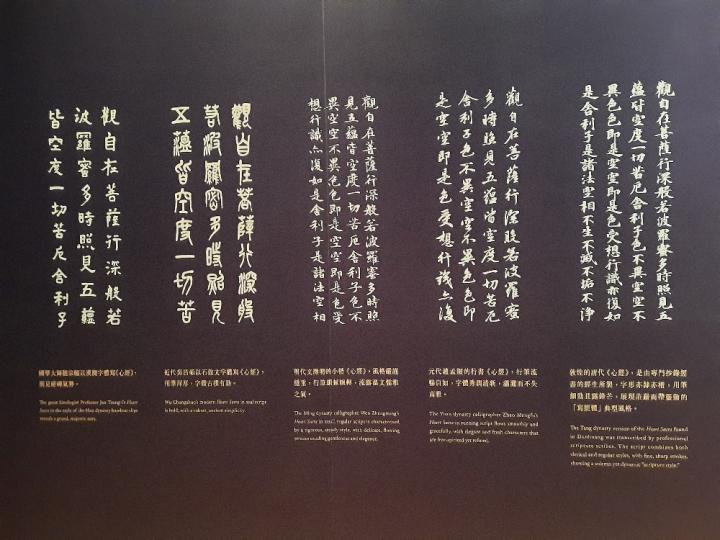 觀自在菩薩行深般若波羅蜜多時照見五
蘊皆空度一切苦厄舍利子色不異空空不
異色色即是空空即是色受想行識亦復如
是舍利子是諸法空相不生不滅不垢不淨
敦煌的唐代《心經》，是由專門抄錄經
書的經生所製，字形亦隸亦楷，用筆
細勁且露鋒芒，展現莊嚴而帶靈動的
「寫經體」典型風格。
The Tang dynasty version of the Heart Sutra found
in Dunhuang was transcribed by professional
scripture scribes. The script combines both
clerical and regular styles, with fine, sharp strokes,
showing a solemn yet dynamic "scripture style."
觀自在菩薩行深般若波羅蜜
多時照見五蘊皆空度一切苦厄
舍利子色不異空空不異色色即
是空空即是色受想行識亦復
元代趙孟頫的行書《心經》，行筆流
暢自如，字體秀潤清新，瀟灑而不失
高雅。
The Yuan dynasty calligrapher Zhao Mengfu's
Heart Sutra in running script flows smoothly and
gracefully, with elegant and fresh characters that
are free-spirited yet refined.
觀自在菩薩行深般若波羅蜜多時照
見五蘊皆空度一切苦厄舍利子色不
異空空不異色色即是空空即是色受
想行識亦復如是舍利子是諸法空相
明代文徵明的小楷《心經》，風格嚴謹
穩重，行款細緻婉轉，流露溫文儒雅
之氣。
The Ming dynasty calligrapher Wen Zhengming's
Heart Sutra in small regular script is characterised
by a rigorous, steady style, with delicate, flowing
strokes exuding gentleness and elegance.
觀自在菩薩行深般
若波羅蜜多時照見
五蘊皆空度一切苦
近代吳昌碩以石鼓文字體寫《心經》，
用筆渾厚，字體古樸有勁。
Wu Changshuo's modern Heart Sutra in seal script
is bold, with a robust, ancient simplicity.
觀自在菩薩行深般若
波羅蜜多時照見五蘊
皆空度一切苦厄舍利子
國學大師饒宗頤以漢簡字體寫《心經》，
別見磅礡氣勢。
The great Sinologist Professor Jao Tsung-i's Heart
Sutra in the style of the Han dynasty bamboo slips
reveals a grand, majestic aura.